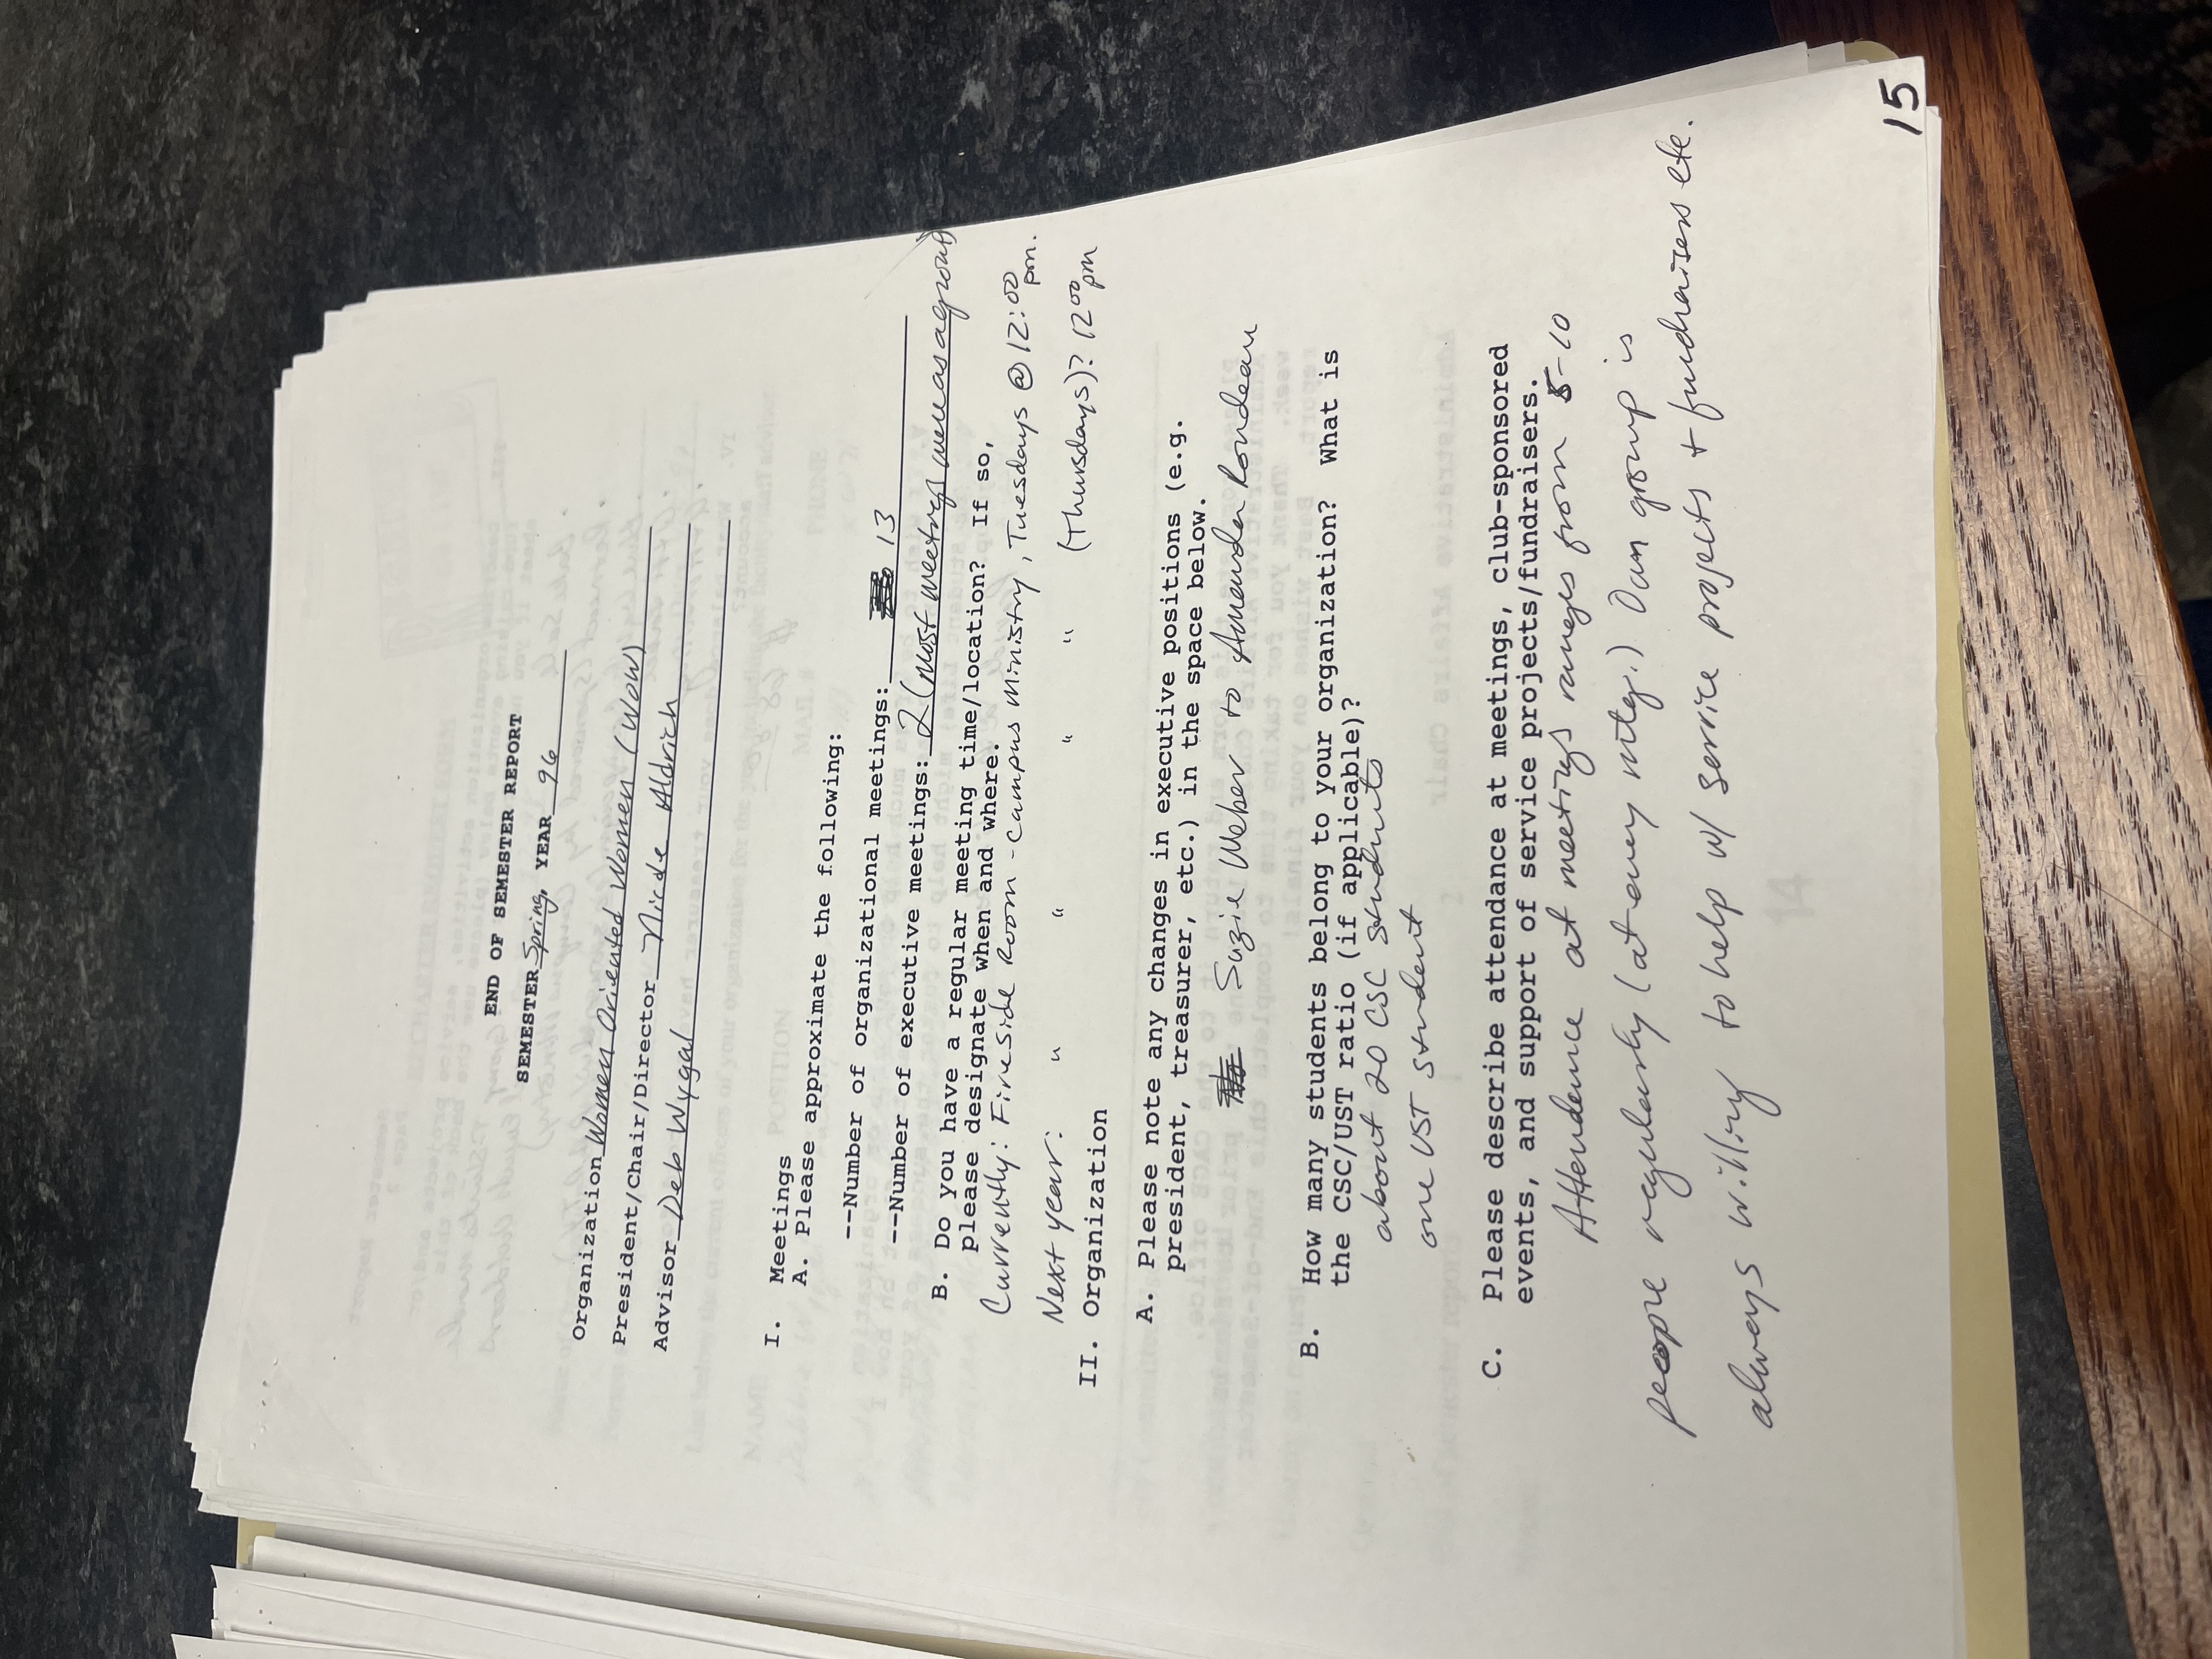 END OF SEMESTER REPORT
SEMESTER Spring, YEAR 96
Organization Women Oriented Women (WOW)
President/Chair/Director Nicole Aldrich
Advisor Deb Wygal
I. Meetings
A. Please approximate the following:
--Number of organizational meetings: 13
--Number of executive meetings: 2 (most meetings were as a group)
B. Do you have a regular meeting time/location? If so,
please designate when and where.
Currently: Fireside Room - Campus Ministry, Tuesdays @ 12:00 pm.
Next year: " " " " (Thursdays)? 12 00 pm
II. Organization
A. Please note any changes in executive positions (e.g.
president, treasurer, etc.) in the space below.
No Suzie Weber to Amanda Rondeau
B. How many students belong to your organization? What is
the CSC/UST ratio (if applicable)?
about 20 CSC students
one UST student
C. Please describe attendance at meetings, club-sponsored
events, and support of service projects/fundraisers.
Attendance at meetings ranges from 5-10
people regularly (at every mtg.) Our group is
always willing to help w/ service projects + fundraisers etc.
15